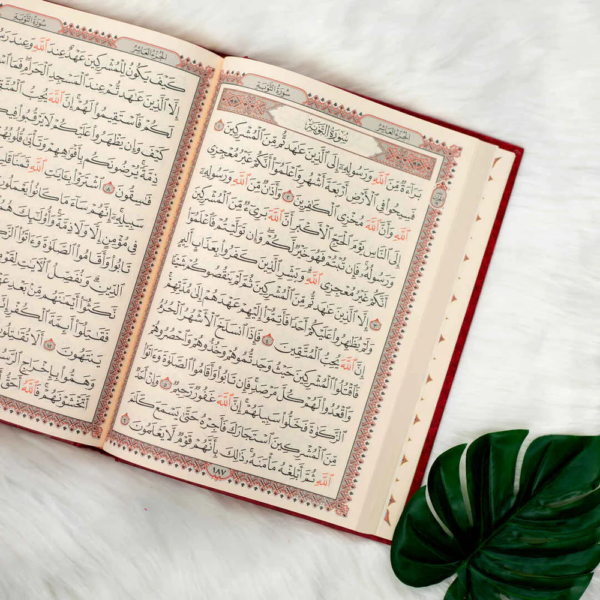 سُورَةُ التَّوْبَةِ
الجُزْءُ العَاشِرُ
سُورَةُ التَّوْبَةِ
بَرَآءَةٌ مِّنَ ٱللَّهِ وَرَسُولِهِۦٓ إِلَى ٱلَّذِينَ عَٰهَدتُّم مِّنَ ٱلْمُشْرِكِينَ ١
فَسِيحُوا۟ فِى ٱلْأَرْضِ أَرْبَعَةَ أَشْهُرٍ وَٱعْلَمُوٓا۟ أَنَّكُمْ غَيْرُ مُعْجِزِى
ٱللَّهِ وَأَنَّ ٱللَّهَ مُخْزِى ٱلْكَٰفِرِينَ ٢ وَأَذَٰنٌ مِّنَ ٱللَّهِ وَرَسُولِهِۦٓ
إِلَى ٱلنَّاسِ يَوْمَ ٱلْحَجِّ ٱلْأَكْبَرِ أَنَّ ٱللَّهَ بَرِىٓءٌ مِّنَ ٱلْمُشْرِكِينَ
وَرَسُولُهُۥ فَإِن تُبْتُمْ فَهُوَ خَيْرٌ لَّكُمْ وَإِن تَوَلَّيْتُمْ فَٱعْلَمُوٓا۟
أَنَّكُمْ غَيْرُ مُعْجِزِى ٱللَّهِ وَبَشِّرِ ٱلَّذِينَ كَفَرُوا۟ بِعَذَابٍ أَلِيمٍ
٣ إِلَّا ٱلَّذِينَ عَٰهَدتُّم مِّنَ ٱلْمُشْرِكِينَ ثُمَّ لَمْ يَنقُصُوكُمْ شَيْـًٔا
وَلَمْ يُظَٰهِرُوا۟ عَلَيْكُمْ أَحَدًا فَأَتِمُّوٓا۟ إِلَيْهِمْ عَهْدَهُمْ إِلَىٰ مُدَّتِهِمْ
إِنَّ ٱللَّهَ يُحِبُّ ٱلْمُتَّقِينَ ٤ فَإِذَا ٱنسَلَخَ ٱلْأَشْهُرُ ٱلْحُرُمُ
فَٱقْتُلُوا۟ ٱلْمُشْرِكِينَ حَيْثُ وَجَدتُّمُوهُمْ وَخُذُوهُمْ وَٱحْصُرُوهُمْ
وَٱقْعُدُوا۟ لَهُمْ كُلَّ مَرْصَدٍ فَإِن تَابُوا۟ وَأَقَامُوا۟ ٱلصَّلَوٰةَ وَءَاتَوُا۟
ٱلزَّكَوٰةَ فَخَلُّوا۟ سَبِيلَهُمْ إِنَّ ٱللَّهَ غَفُورٌ رَّحِيمٌ ٥ وَإِنْ أَحَدٌ
مِّنَ ٱلْمُشْرِكِينَ ٱسْتَجَارَكَ فَأَجِرْهُ حَتَّىٰ يَسْمَعَ كَلَٰمَ
ٱللَّهِ ثُمَّ أَبْلِغْهُ مَأْمَنَهُۥ ذَٰلِكَ بِأَنَّهُمْ قَوْمٌ لَّا يَعْلَمُونَ ٦
١٨٧
الجُزْءُ العَاشِرُ
سُورَةُ التَّوْبَةِ
كَيْفَ يَكُونُ لِلْمُشْرِكِينَ عَهْدٌ عِندَ ٱللَّهِ وَعِندَ
إِلَّا ٱلَّذِينَ عَٰهَدتُّمْ عِندَ ٱلْمَسْجِدِ ٱلْحَرَامِ فَمَا
لَكُمْ فَٱسْتَقِيمُوا۟ لَهُمْ إِنَّ ٱللَّهَ يُحِبُّ
كَيْفَ وَإِن يَظْهَرُوا۟ عَلَيْكُمْ لَا يَرْقُبُوا۟
ذِمَّةً يُرْضُونَكُم بِأَفْوَٰهِهِمْ وَتَأْبَىٰ قُلُوبُهُمْ
فَٰسِقُونَ ٨ ٱشْتَرَوْا۟ بِـَٔايَٰتِ ٱللَّهِ ثَمَنًا
سَبِيلِهِۦٓ إِنَّهُمْ سَآءَ مَا كَانُوا۟ يَعْمَلُونَ
فِى مُؤْمِنٍ إِلًّا وَلَا ذِمَّةً وَأُو۟لَٰٓئِكَ
تَابُوا۟ وَأَقَامُوا۟ ٱلصَّلَوٰةَ وَءَاتَوُا۟
ٱلدِّينِ وَنُفَصِّلُ ٱلْءَايَٰتِ
نَّكَثُوٓا۟ أَيْمَٰنَهُم مِّنۢ بَعْدِ
فَقَٰتِلُوٓا۟ أَئِمَّةَ ٱلْكُفْرِ
يَنتَهُونَ ١٢ أَلَا تُقَٰتِلُونَ
وَهَمُّوا۟ بِإِخْرَاجِ
أَتَخْشَوْنَهُمْ فَٱللَّهُ أَحَقُّ